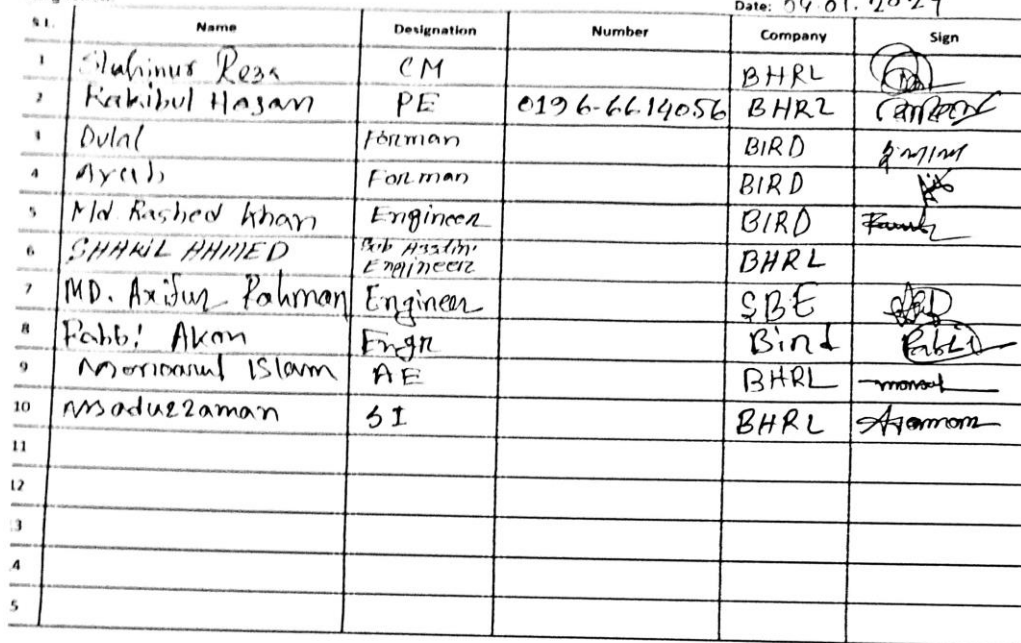 Date: 04.01.2024
SL. Name Designation Number Company Sign
1 Shahinur Reza CM BHRL
2 Rakibul Hasan PE 0196-6614056 BHRL
3 Dulal Forman BIRD দুলাল
4 Ayub Forman BIRD
5 Md. Rashed Khan Engineer BIRD
6 SHAKIL AHMED Sub Asstin Engineer BHRL
7 MD. Arifur Rahman Engineer SBE
8 Rabbi Akon Engr Bird Rabbi
9 Islam AE BHRL
10 Asaduzzaman SI BHRL
11
12
3
4
5